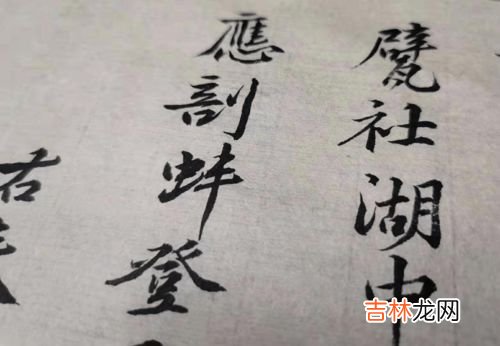 甓社湖中
應剖蚌登
右
吉林龙网